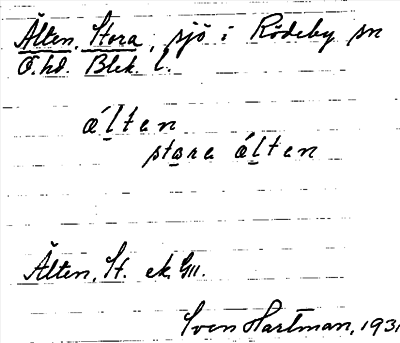 Älten, Stora, sjö i Rödeby sn
Ö. hd. Blek. l.
álten
stora álten
Älten, St. ek. GII.
Sven Hartman, 1931